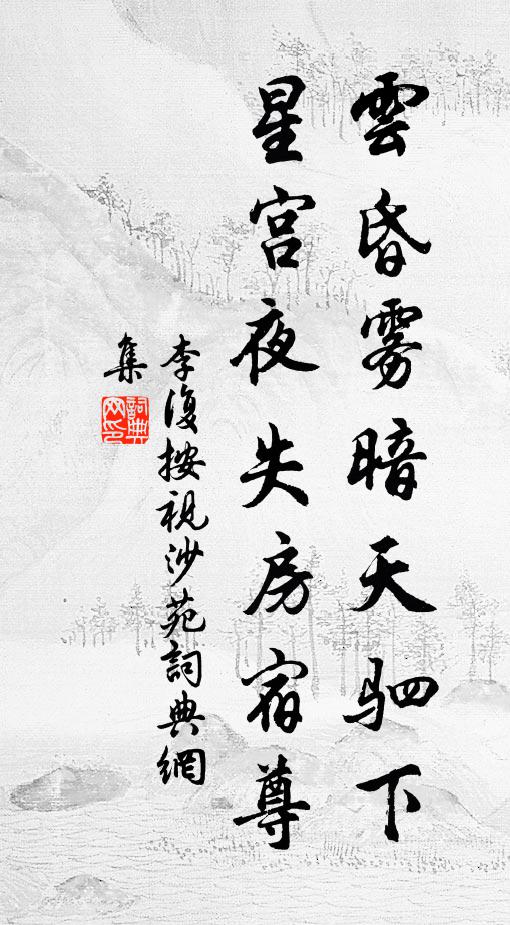 雲昏雾暗天駟下
星宫夜失房宿尊
李復按視沙苑詞典網
集
詞典
网印